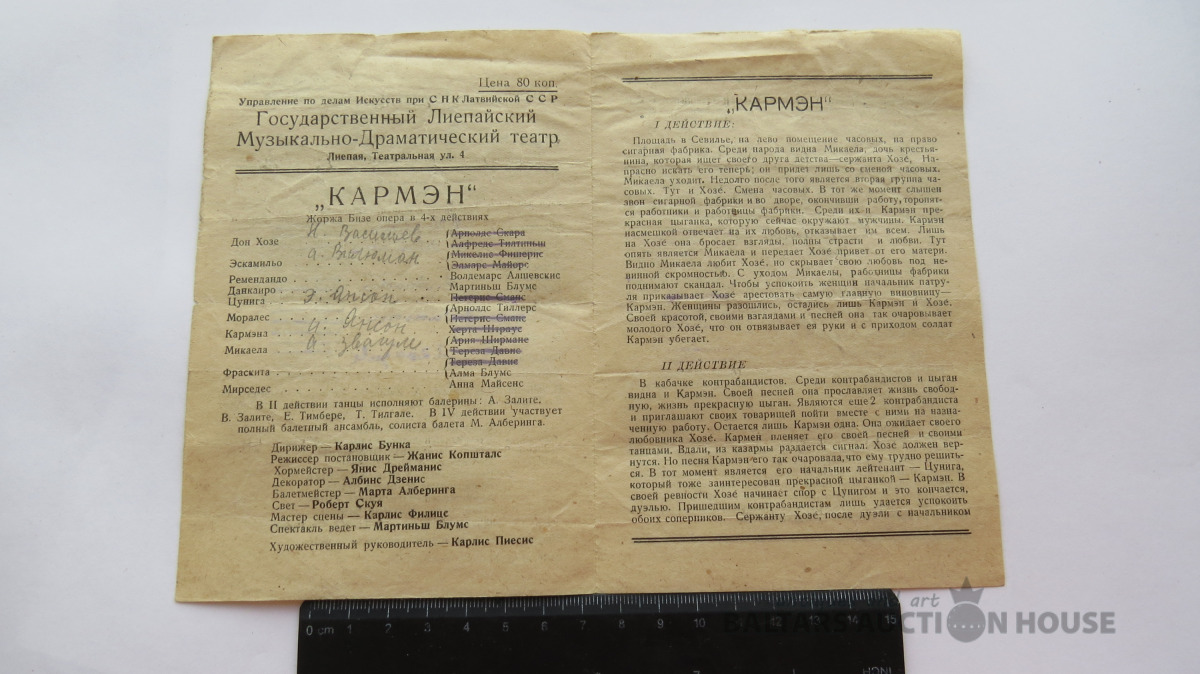 Цена 80 коп.
Управление по делам Искусств при СНК Латвийской ССР
Государственный Лиепайский
Музыкально-Драматический театр
Лиепая, Театральная ул. 4
„КАРМЭН“
Жоржа Бизе опера в 4-х действиях
Дон Хозе Н. Васильев Арнолдс Скара
Алфредс Тилтиньш
Эскамильо Микелис Фишерис
Элмарс Майорс
Ремендандо Волдемарс Алшевскис
Данкаиро Мартиньш Блумс
Цунига Э. Янсон Петерис Сманс
Арнолдс Тиллерс
Моралес Петерис Сманс
Кармэна Янсон Херта Штраус
Ария Ширмане
Микаела Тереза Давис
Тереза Давис
Фраскита Алма Блумс
Мирседес Анна Майсенс
В II действии танцы исполняют балерины: А. Залите.
В. Залите, Е. Тимбере, Т. Тилгале. В IV действии участвует
полный балетный ансамбль, солиста балета М. Алберинга.
Дирижер — Карлис Бунка
Режиссер постановщик — Жанис Копшталс
Хормейстер — Янис Дрейманис
Декоратор — Албинс Дзенис
Балетмейстер — Марта Алберинга
Свет — Роберт Скуя
Мастер сцены — Карлис Филицс
Спектакль ведет — Мартиньш Блумс
Художественный руководитель — Карлис Пиесис
„КАРМЭН“
I ДЕЙСТВИЕ:
Площадь в Севилье, на лево помещение часовых, на право
сигарная фабрика. Среди народа видна Микаела, дочь крестья-
нина, которая ищет своего друга детства—сержанта Хозе. На-
прасно искать его теперь; он придет лишь со сменой часовых.
Микаела уходит. Недолго после того является вторая группа ча-
совых. Тут и Хозе. Смена часовых. В тот же момент слышен
звон сигарной фабрики и во дворе, окончивши работу, торопят-
ся работники и работницы фабрики. Среди их и Кармэн пре-
красная цыганка, которую сейчас окружают мужчины. Кармэн
насмешкой отвечает на их любовь, отказывает им всем. Лишь
на Хозе она бросает взгляды, полны страсти и любви. Тут
опять является Микаела и передает Хозе привет от его матери.
Видно Микаела любит Хозе, но скрывает свою любовь под не-
винной скромностью. С уходом Микаелы, работницы фабрики
поднимают скандал. Чтобы успокоить женщин начальник патру-
ля приказывает Хозе арестовать самую главную виновницу—
Кармэн. Женщины разошлись, остались лишь Кармэн и Хозе.
Своей красотой, своими взглядами и песней она так очаровывает
молодого Хозе, что он отвязывает ея руки и с приходом солдат
Кармэн убегает.
II ДЕЙСТВИЕ
В кабачке контрабандистов. Среди контрабандистов и цыган
видна и Кармэн. Своей песней она прославляет жизнь свобод-
ную, жизнь прекрасную цыган. Являются еще 2 контрабандиста
и приглашают своих товарищей пойти вместе с ними на назна-
ченную работу. Остается лишь Кармэн одна. Она ожидает своего
любовника Хозе. Кармен пленяет его своей песней и своими
танцами. Вдали, из казармы раздается сигнал. Хозе должен вер-
нутся. Но песня Кармэн его так очаровала, что ему трудно решить-
ся. В тот момент является его начальник лейтенант — Цунига,
который тоже заинтересован прекрасной цыганкой — Кармэн. В
своей ревности Хозе начинает спор с Цунигом и это кончается,
дуэлью. Пришедшим контрабандистам лишь удается успокоить
обоих соперников. Сержанту Хозе, после дуэли с начальником
0 cm 1 2 3 4 5 6 7 8 9 10 11 12 13 14 15
INCH
art
BALTARS AUCTION HOUSE